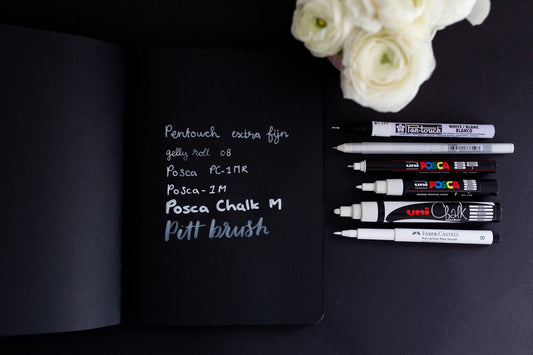 Pentouch extra fijn
gelly roll 08
Posca PC-1MR
Posca-1M
Posca Chalk M
Pitt brush
Pen-touch WHITE/BLANC BLANCO
uni POSCA
uni POSCA
uni Chalk
FABER-CASTELL
Pitt Artist Pen brush B